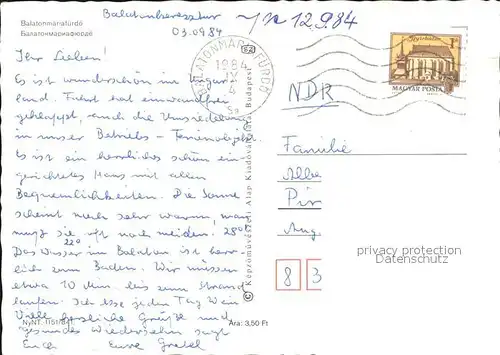 Balatonmáriafürdő
Балатонмариафюрдё
Balatonkeresztur
03.09.84
12.9.84
Ihr Lieben!
Es ist wunderschön im Ungar
land. Fahrt hat einwandfrei
geklappt, auch die Umsiedelung
in unser Betriebs - Ferienobjekt.
Es ist ein herrliches schön ein
gerichtetes Haus mit allen
Bequemlichkeiten. Die Sonne
scheint noch sehr warm, man
muß sie oft noch meiden. 28°
22°
Das Wasser im Balaton ist herr
lich zum Baden. Wir müssen
etwa 10 Min. bis zum Strand
laufen. Ich esse jeden Tag Wein
Viele herzliche Grüße und
gesundes Wiedersehen sagt
Euch Eure Gretel
NyNT. 1151/8
Ára: 3,50 Ft
© Képzőművészeti Alap Kiadóvállalata, Budapest
BALATONMÁRIAFÜRDŐ
1984
4
MAGYAR POSTA
1
NDR
Familie
Albe
Pir
Aug.
8 3
privacy protection
Datenschutz